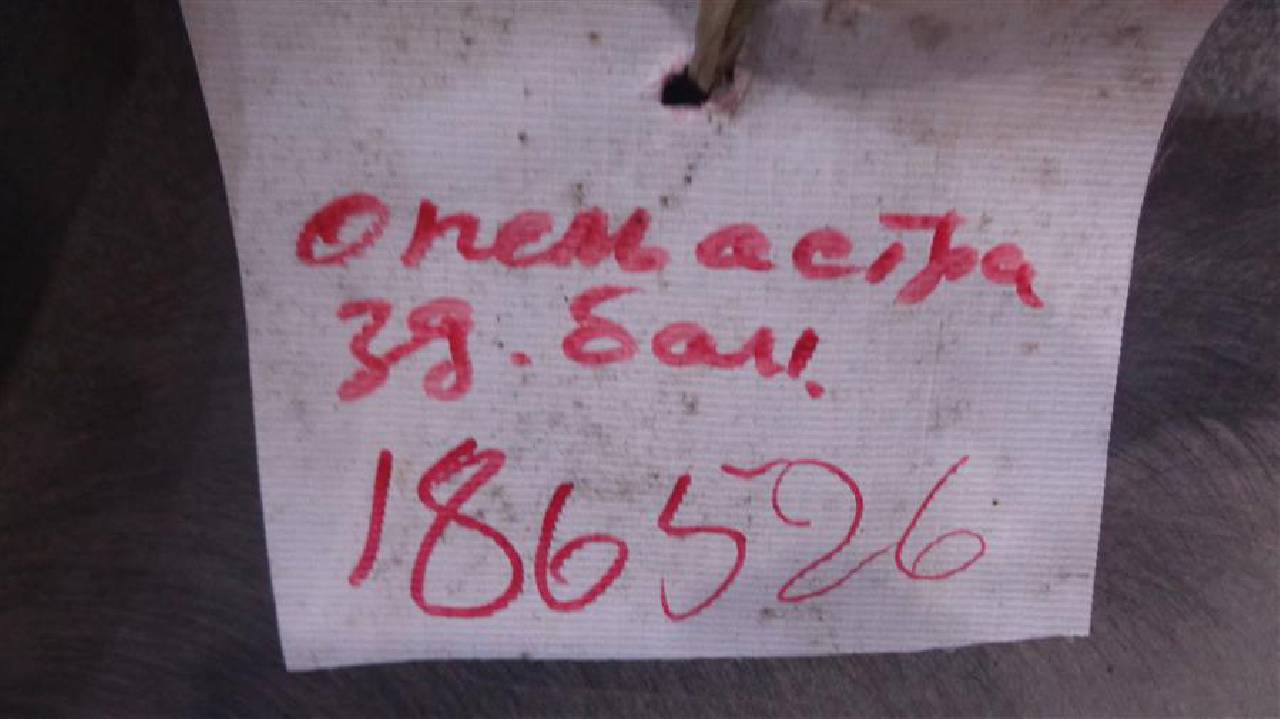 опель астра
зд. бам.
186526